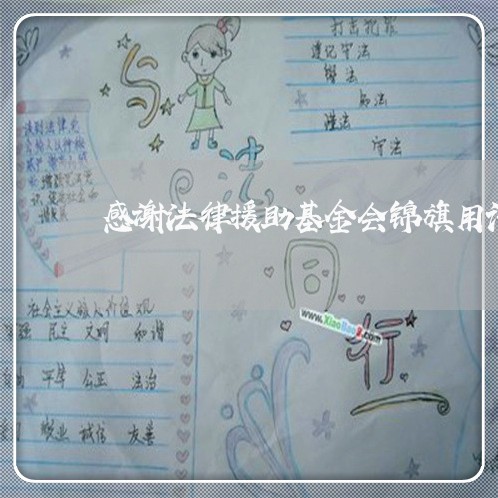 打击犯罪
遵记守法
学法
知法
懂法
守法
与
法
同
行
谈到法律
会给人以神秘
感谢法律援助基金会锦旗用
www.XiaoBao8.com
社会主义核心价值观
强 民主 文明 和谐
由 平等 公正 法治
敬业 诚信 友善